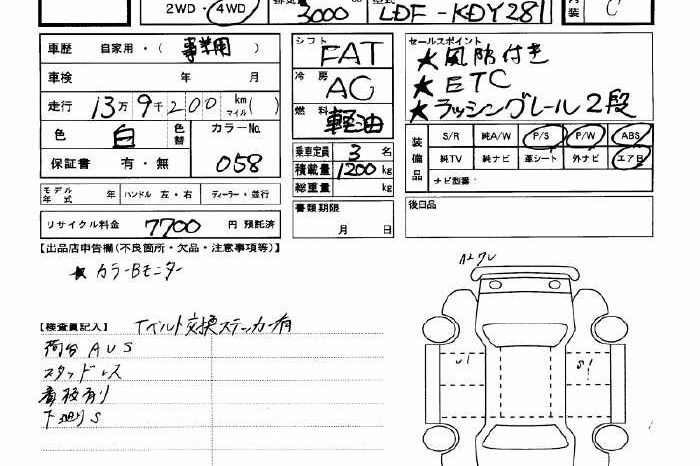 2WD ・ 4WD 排気量 3000 型式 LDF-KDY281 内装 C
車歴 自家用・(事業用)
車検 年 月
走行 13万9千200 km マイル ( )
色 白 色替 カラーNo. 058
保証書 有・無
モデル年式 年 ハンドル 左・右 ディーラー・並行
リサイクル料金 7700 円 預託済
シフト FAT
冷房 AC
燃料 軽油
乗車定員 3 名
積載量 1200 kg
総重量 kg
書類期限
月 日
セールスポイント
★風防付き
★ETC
★ラッシングレール2段
装備品 S/R 純A/W P/S P/W ABS
純TV 純ナビ 革シート 外ナビ エアB
ナビ型番:
後日品
【出品店申告欄(不良箇所・欠品・注意事項等)】
★カラーBモニター
【検査員記入】 Tベルト交換ステッカー有
荷台AUS
スタッドレス
看板有り
下廻りS
A2 ワレ
U1
S1